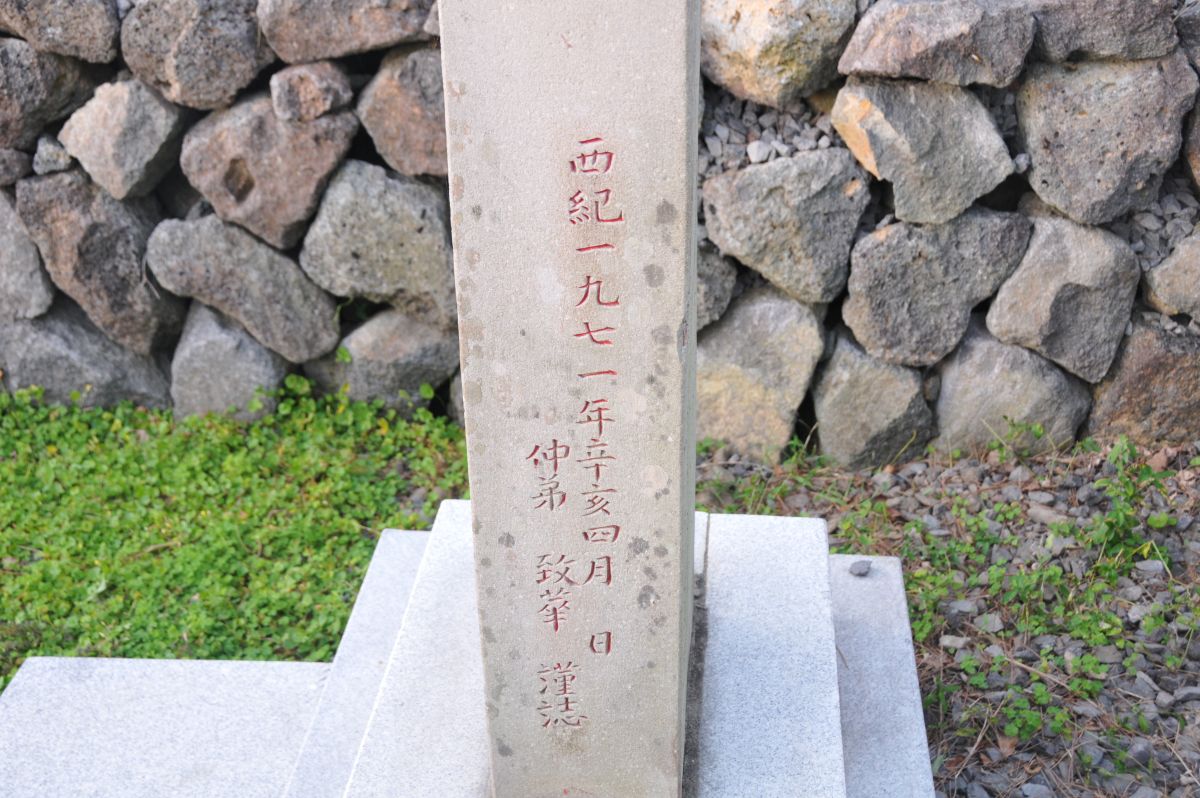 西紀一九七一年辛亥四月 日
仲弟 致華 謹誌